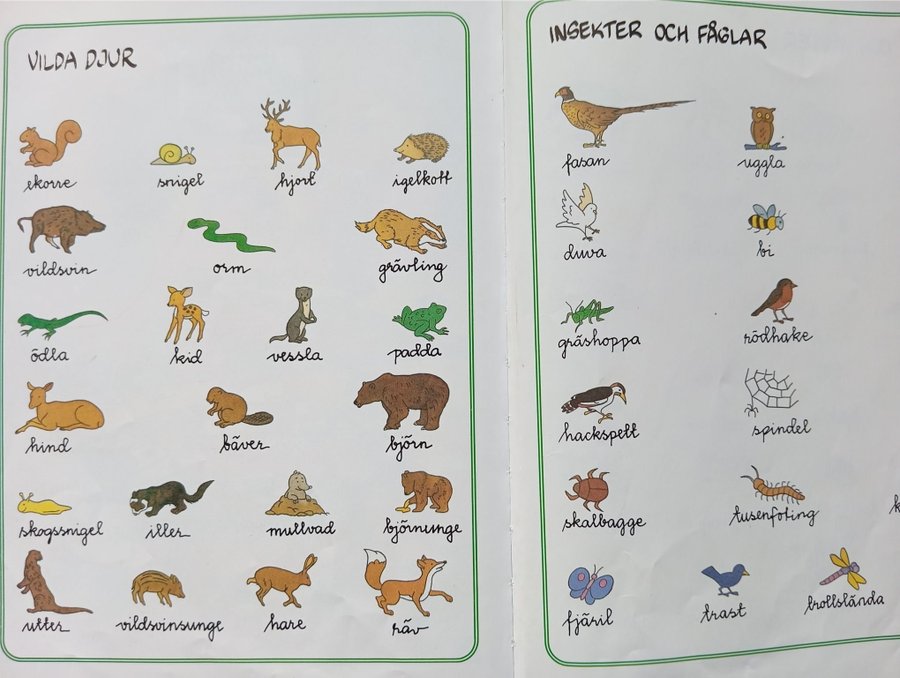 VILDA DJUR
ekorre
snigel
hjort
igelkott
vildsvin
orm
grävling
ödla
kid
vessla
padda
hind
bäver
björn
skogssnigel
iller
mullvad
björnunge
utter
vildsvinsunge
hare
räv
INSEKTER OCH FÅGLAR
fasan
uggla
duva
bi
gräshoppa
rödhake
hackspett
spindel
skalbagge
tusenfoting
fjäril
trast
trollslända